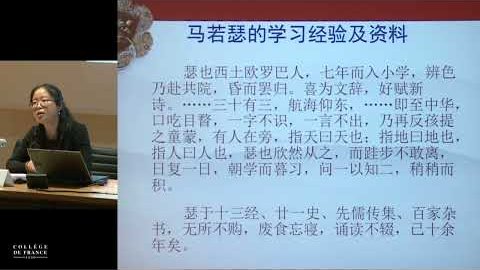 马若瑟的学习经验及资料
瑟也西土欧罗巴人，七年而入小学，辨色
乃赴共院，昏而罢归。喜为文辞，好赋新
诗。……三十有三，航海仰东，……即至中华，
口吃目瞀，一字不识，一言不出，乃再反孩提
之童蒙，有人在旁，指天曰天也；指地曰地也，
指人曰人也，瑟也欣然从之，而跬步不敢离，
日复一日，朝学而暮习，问一以知二，稍稍而
积。
瑟于十三经、廿一史、先儒传集、百家杂
书，无所不购，废食忘寝，诵读不辍，已十余
年矣。
COLLÈGE
DE FRANCE